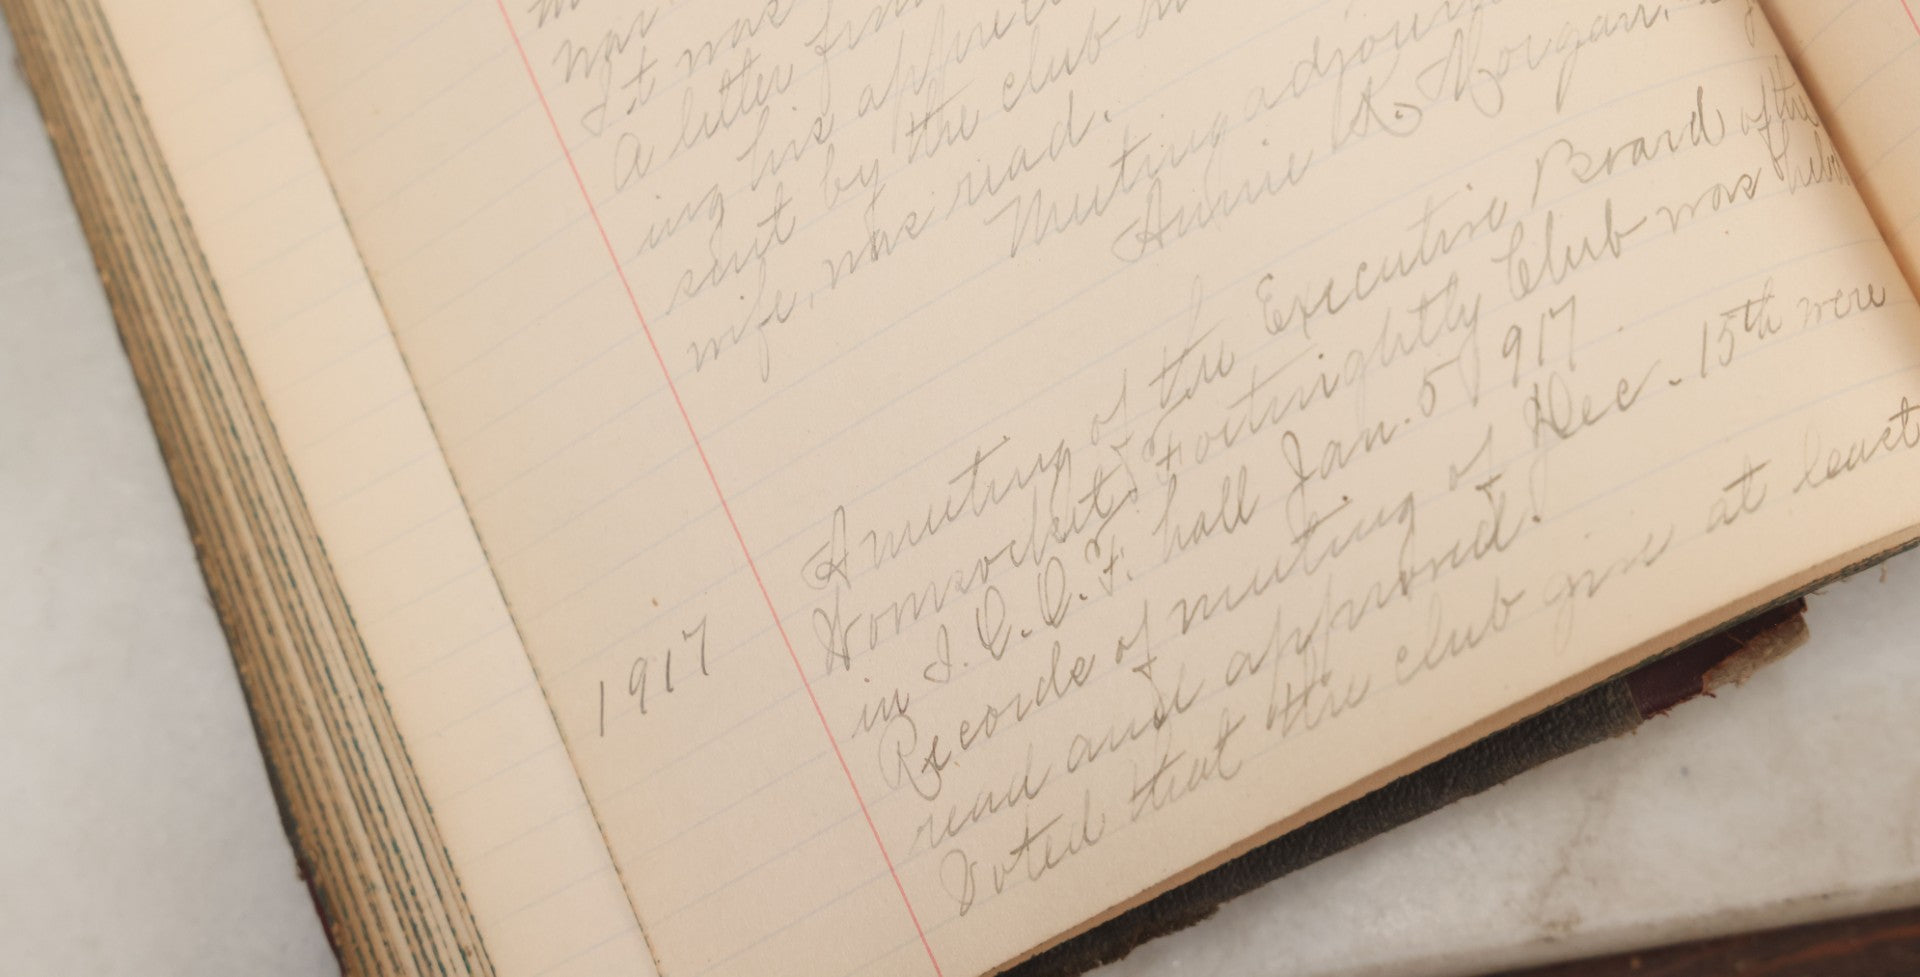 It was
A letter from
ing his appreci
sent by the club
wife, was read.
Meeting adjourn
Annie K. Morgan.
1917
A meeting of the Executive Board of the
Woonsocket Fortnightly Club was held
in I.O.O.F. hall Jan. 5 1917
Records of meeting of Dec. 15th were
read and approved.
Voted that the club give at least